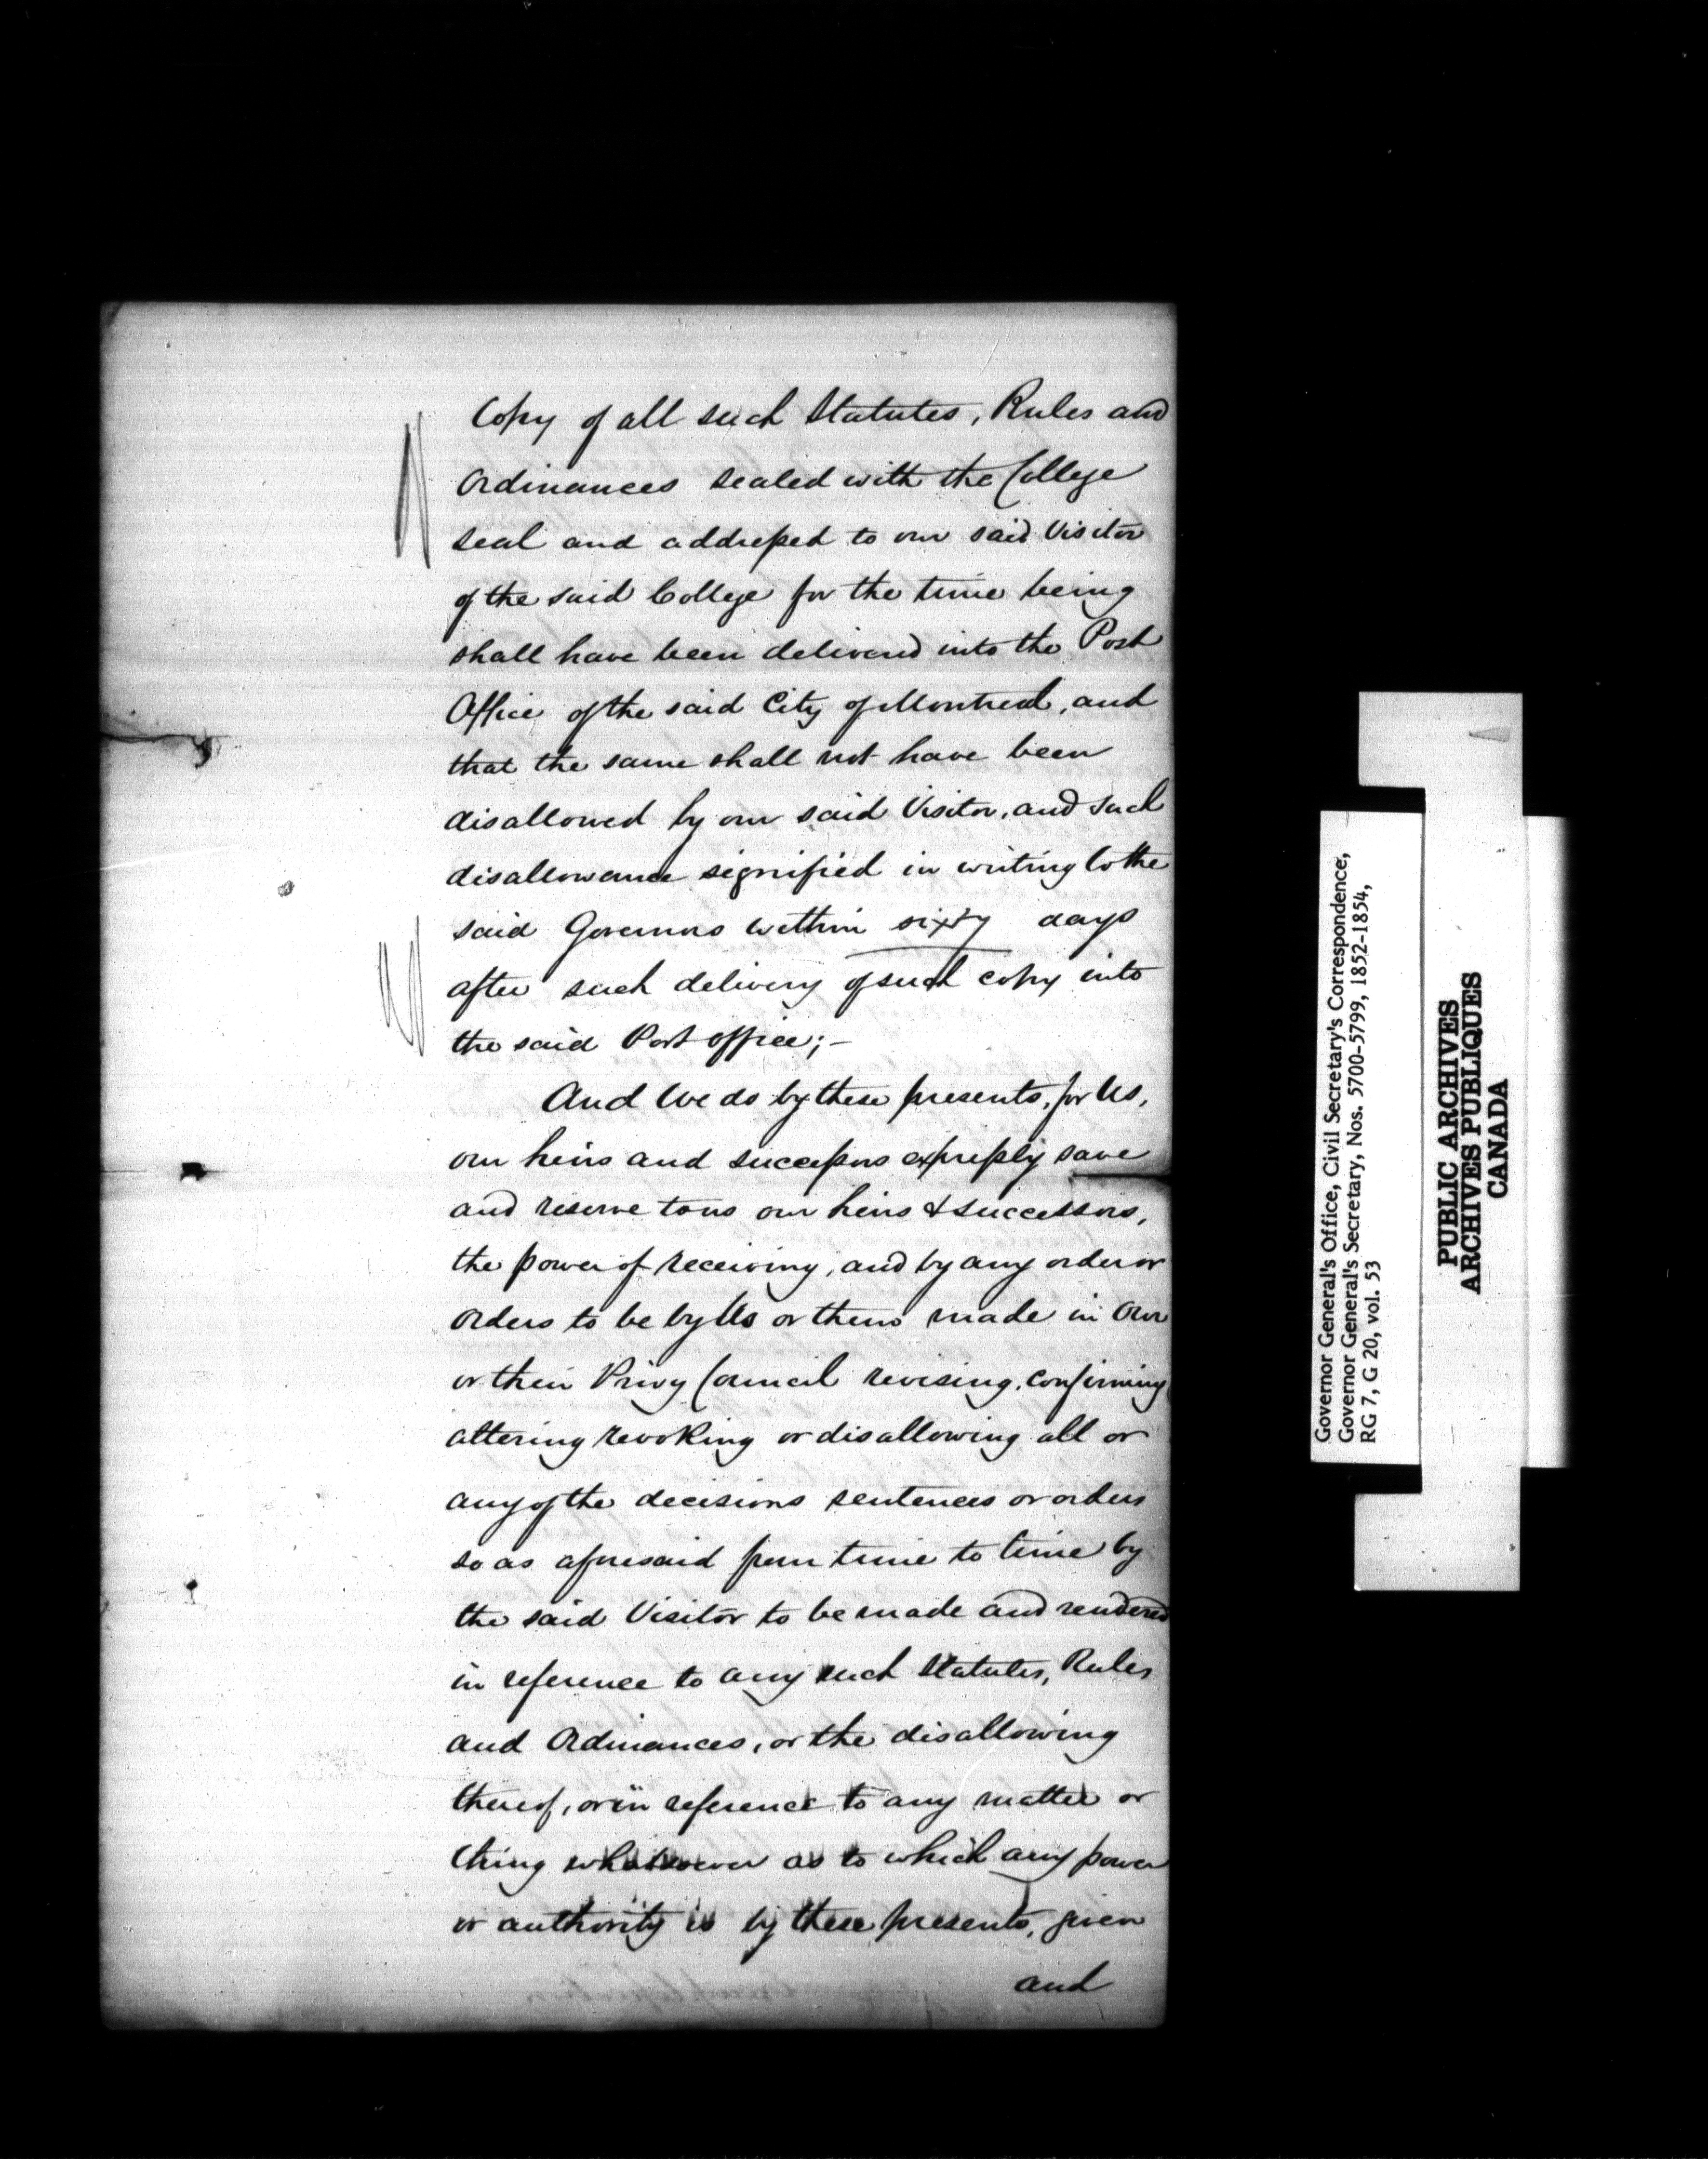 Copy of all such Statutes, Rules and
Ordinances sealed with the College
seal and addressed to our said Visitor
of the said College for the time being
shall have been delivered into the Post
Office of the said City of Montreal, and
that the same shall not have been
disallowed by our said Visitor, and such
disallowance signified in writing to the
said Governors within sixty days
after such delivery of such copy into
the said Post office;—
And We do by these presents, for Us,
our heirs and successors expressly save
and reserve to us our heirs & successors,
the power of receiving, and by any order or
orders to be by Us or them made in Our
or their Privy Council revising, confirming
altering revoking or disallowing all or
any of the decisions sentences or orders
so as aforesaid from time to time by
the said Visitor to be made and rendered
in reference to any such Statutes, Rules
and Ordinances, or the disallowing
thereof, or in reference to any matter or
thing whatsoever as to which any power
or authority is by these presents, given
and
Governor General's Office, Civil Secretary's Correspondence,
Governor General's Secretary, Nos. 5700-5799, 1852-1854,
RG 7, G 20, vol. 53
PUBLIC ARCHIVES
ARCHIVES PUBLIQUES
CANADA